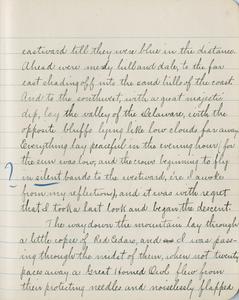 eastward till they were blue in the distance.
Ahead were nearly hill and dale, to the far
east shading off into the sand hills of the coast.
And to the southwest, with a great majestic
dip, lay the valley of the Delaware, with the
opposite bluffs lying like low clouds far away.
Everything lay peaceful in the evening hour, for
the sun was low, and the crows beginning to fly
? in silent bands to the westward, ere I awoke
from my reflection, and it was with regret
that I took a last look and began the descent.
The way down the mountain lay through
a little copse of Red Cedars, and as I was pass-
ing through the midst of them, when not twenty
paces away a Great Horned Owl flew from
their protecting needles and noiselessly flapped